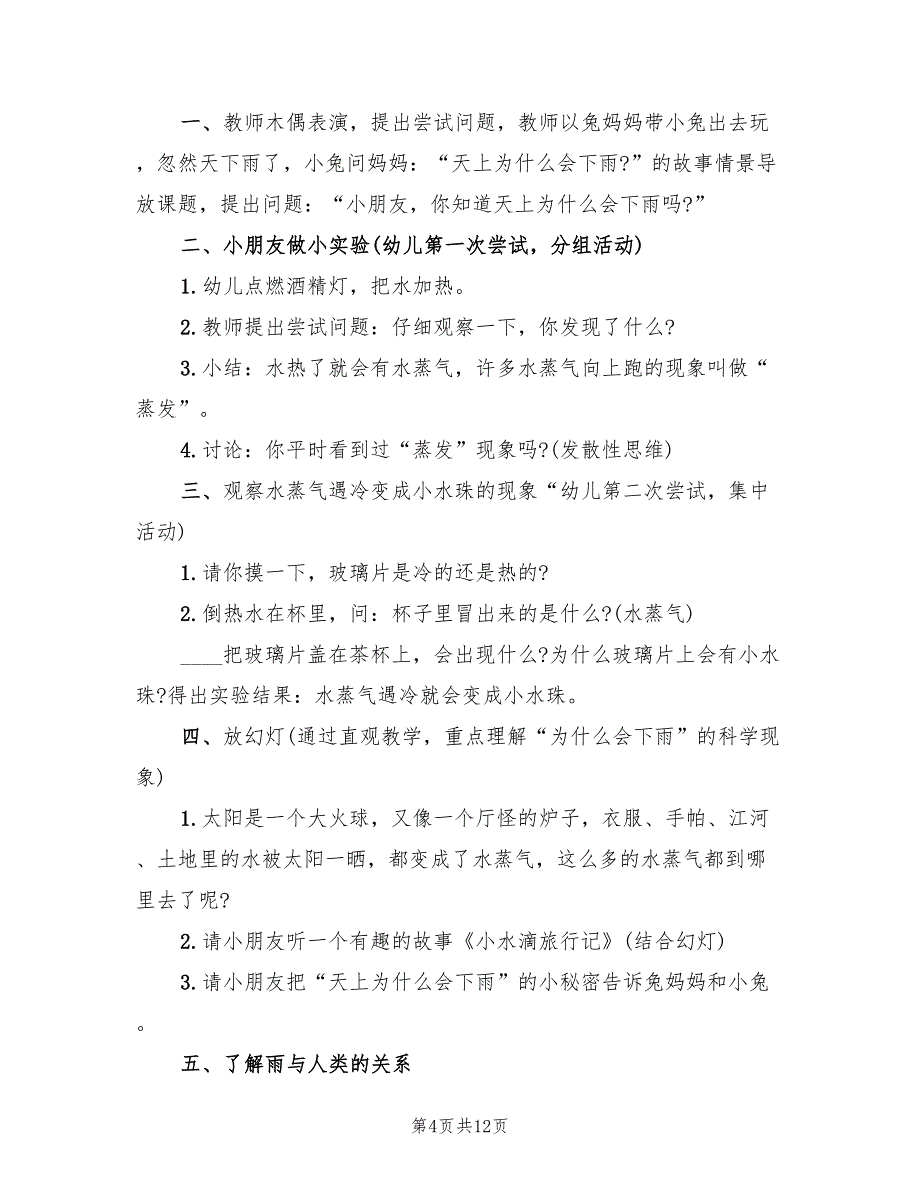 一、教师木偶表演，提出尝试问题，教师以兔妈妈带小兔出去玩
，忽然天下雨了，小兔问妈妈：“天上为什么会下雨?”的故事情景导
放课题，提出问题：“小朋友，你知道天上为什么会下雨吗?”
二、小朋友做小实验(幼儿第一次尝试，分组活动)
1.幼儿点燃酒精灯，把水加热。
2.教师提出尝试问题：仔细观察一下，你发现了什么?
3.小结：水热了就会有水蒸气，许多水蒸气向上跑的现象叫做“
蒸发”。
4.讨论：你平时看到过“蒸发”现象吗?(发散性思维)
三、观察水蒸气遇冷变成小水珠的现象“幼儿第二次尝试，集中
活动)
1.请你摸一下，玻璃片是冷的还是热的?
2.倒热水在杯里，问：杯子里冒出来的是什么?(水蒸气)
____把玻璃片盖在茶杯上，会出现什么?为什么玻璃片上会有小水
珠?得出实验结果：水蒸气遇冷就会变成小水珠。
四、放幻灯(通过直观教学，重点理解“为什么会下雨”的科学现
象)
1.太阳是一个大火球，又像一个厅怪的炉子，衣服、手帕、江河
、土地里的水被太阳一晒，都变成了水蒸气，这么多的水蒸气都到哪
里去了呢?
2.请小朋友听一个有趣的故事《小水滴旅行记》(结合幻灯)
3.请小朋友把“天上为什么会下雨”的小秘密告诉兔妈妈和小兔
。
五、了解雨与人类的关系
第4页共12页